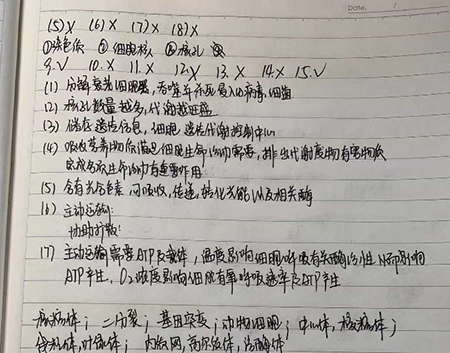 Date. /
(5) X (6) X (7) X (8) X
①染色体 ② 细胞核 ③ 核孔
9.√ 10.X 11.X 12.X 13.X 14.X 15.√
(1) 分解衰老细胞器,吞噬并杀死侵入的病毒、细菌
(2) 核孔数量越多,代谢越旺盛
(3) 储存遗传信息,细胞 遗传代谢控制中心
(4) 吸收营养物质满足细胞生命活动需要,排出代谢废物有害物质
生命活动有重要作用
(5) 含有光合色素 可吸收,传递,转化光能 以及相关酶
(6) 主动运输:
协助扩散:
(7) 主动运输需要ATP及载体,温度影响细胞呼吸有关酶活性 从而影响
ATP产生. O₂浓度影响细胞有氧呼吸速率及ATP产生
核糖体; 二分裂; 基因突变; 动物细胞; 中心体,核糖体;
叶绿体; 内质网,高尔基体,溶酶体